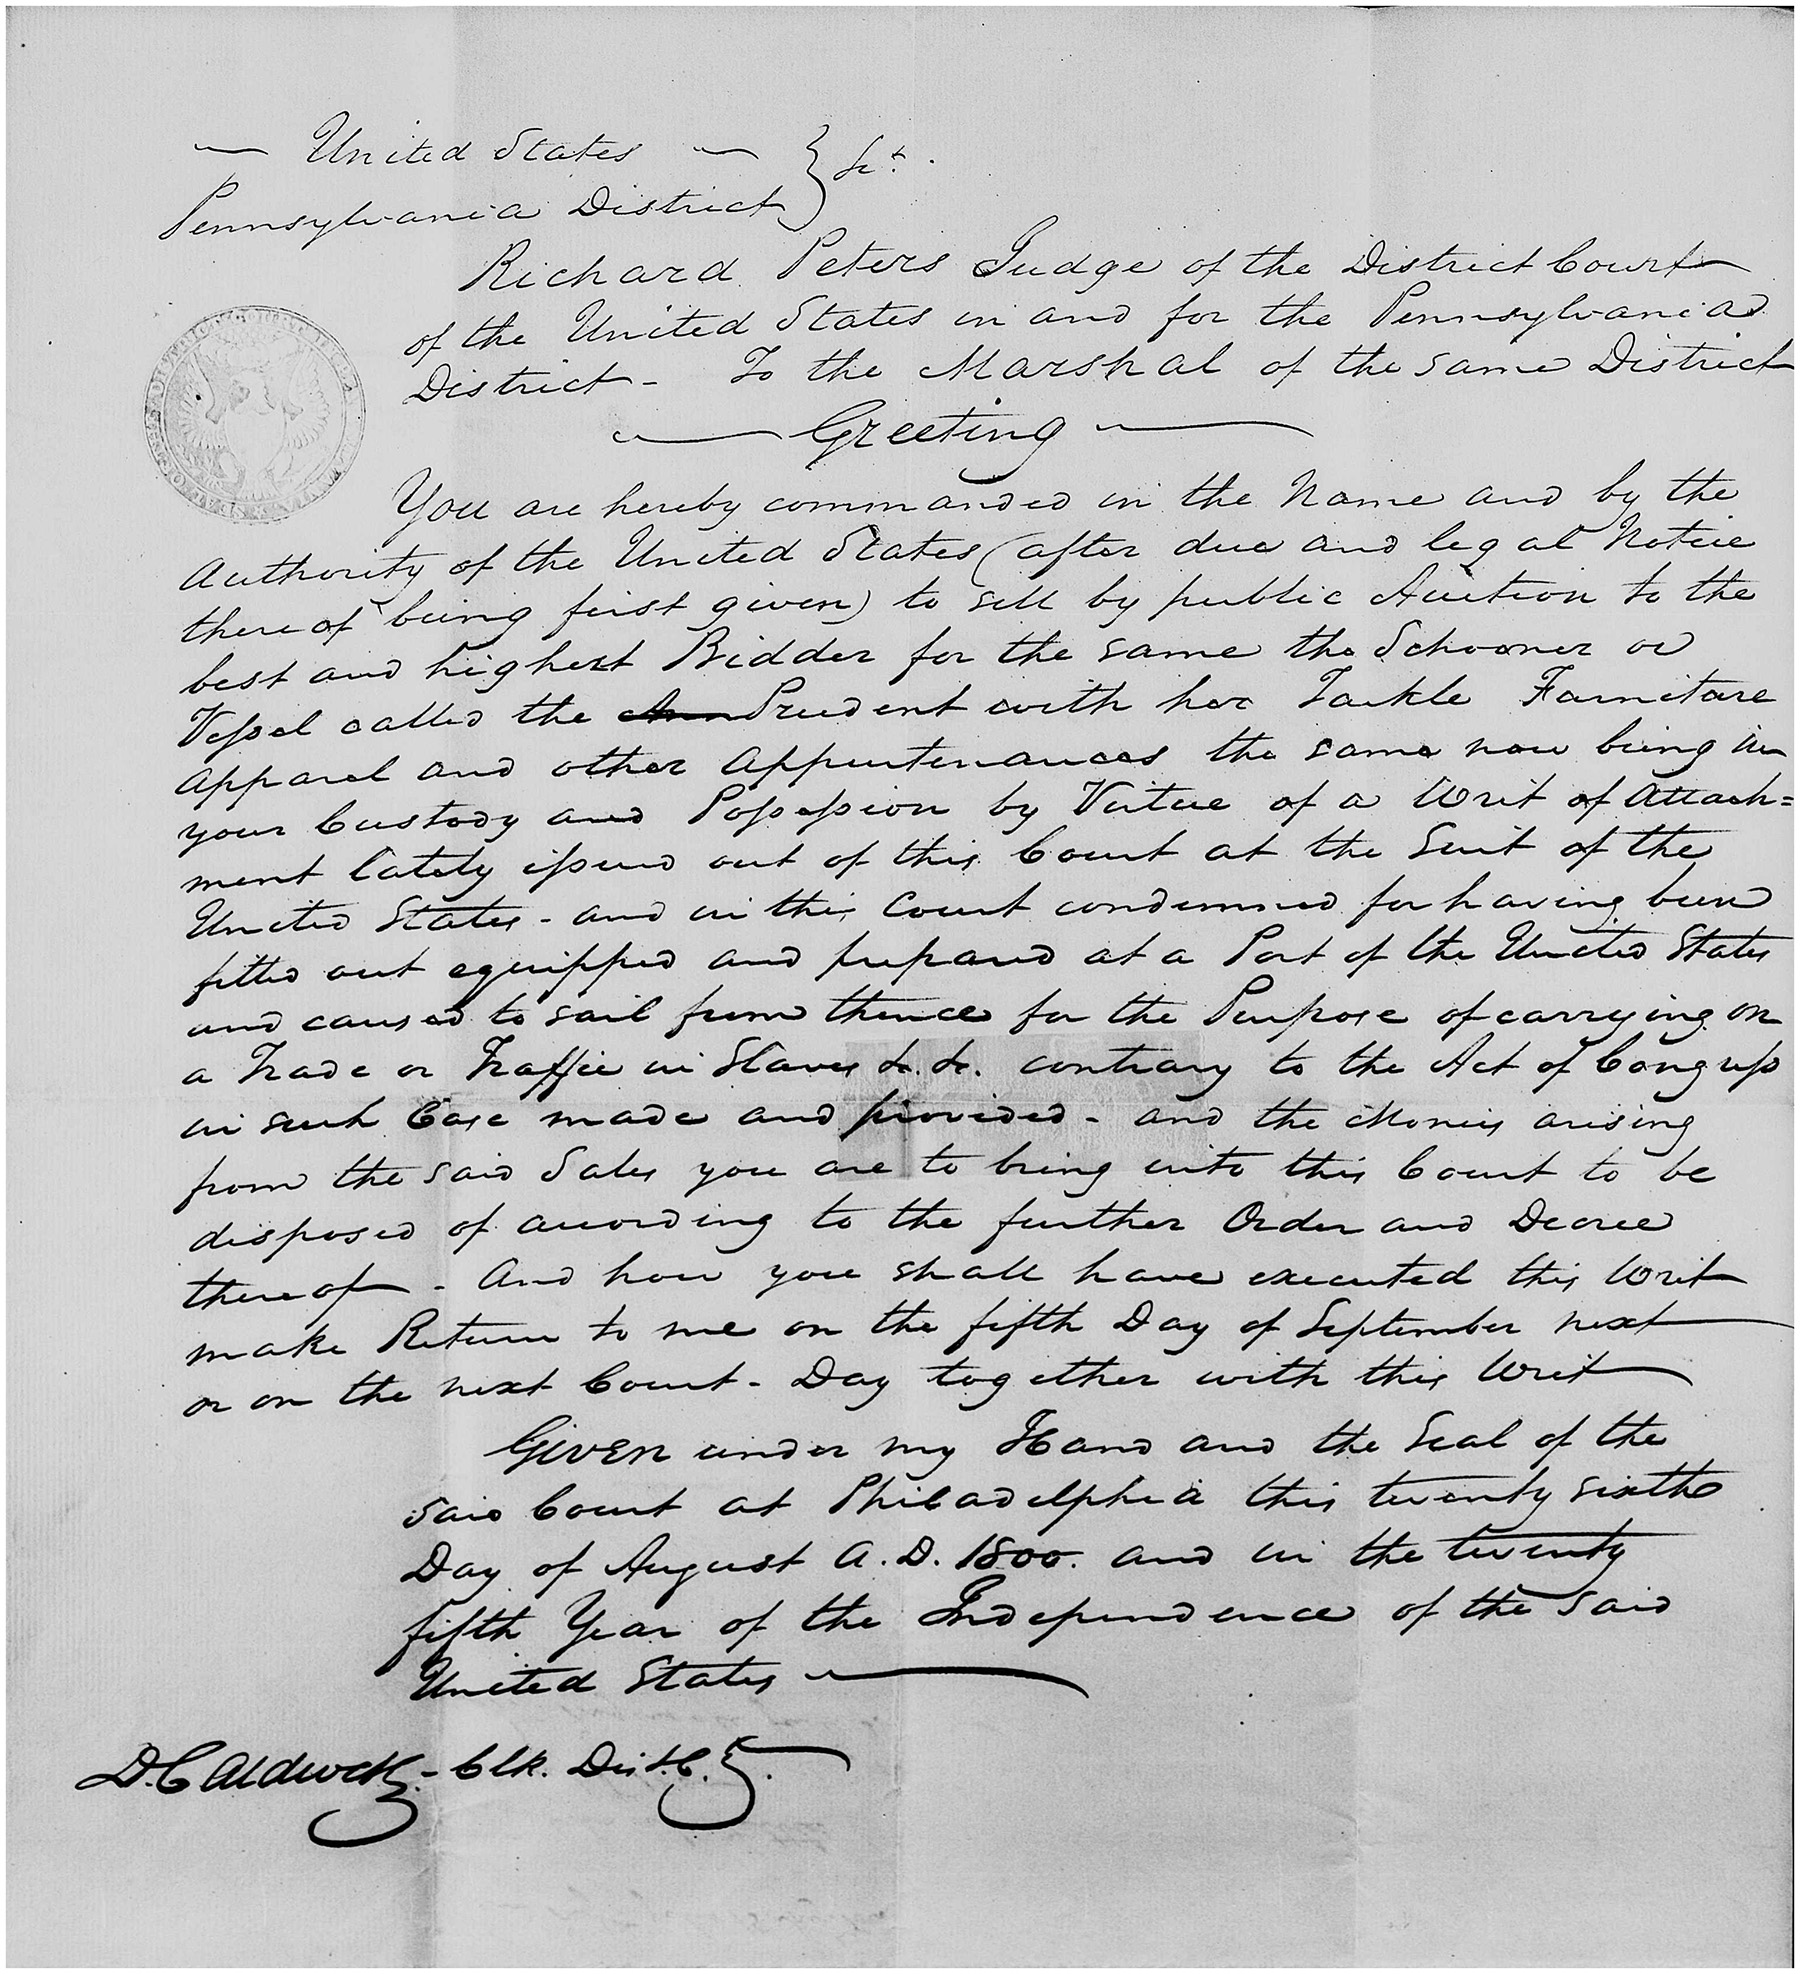 United States
Pennsylvania District } Sct.
Richard Peters Judge of the District Court
of the United States in and for the Pennsylvania
District - To the Marshal of the same District
Greeting
You are hereby commanded in the Name and by the
Authority of the United States (after due and legal Notice
thereof being first given) to sell by public Auction to the
best and highest Bidder for the same the Schooner or
Vessel called the Prudent with her Tackle Furniture
apparel and other appurtenances the same now being in
your Custody and Possession by Virtue of a Writ of Attach=
ment lately issued out of this Court at the Suit of the
United States - and in this Court condemned for having been
fitted out equipped and prepared at a Port of the United States
and caused to sail from thence for the Purpose of carrying on
a Trade or Traffic in Slaves &c. &c. contrary to the Act of Congress
in such Case made and provided - and the Monies arising
from the said Sales you are to bring into this Court to be
disposed of according to the further Order and Decree
thereof - And how you shall have executed this Writ
make Return to me on the fifth Day of September next
or on the next Court - Day together with this Writ
Given under my Hand and the Seal of the
said Court at Philadelphia this twenty sixth
Day of August A. D. 1800. and in the twenty
fifth Year of the Independence of the said
United States
D. Caldwell - Clk. Dist. C.